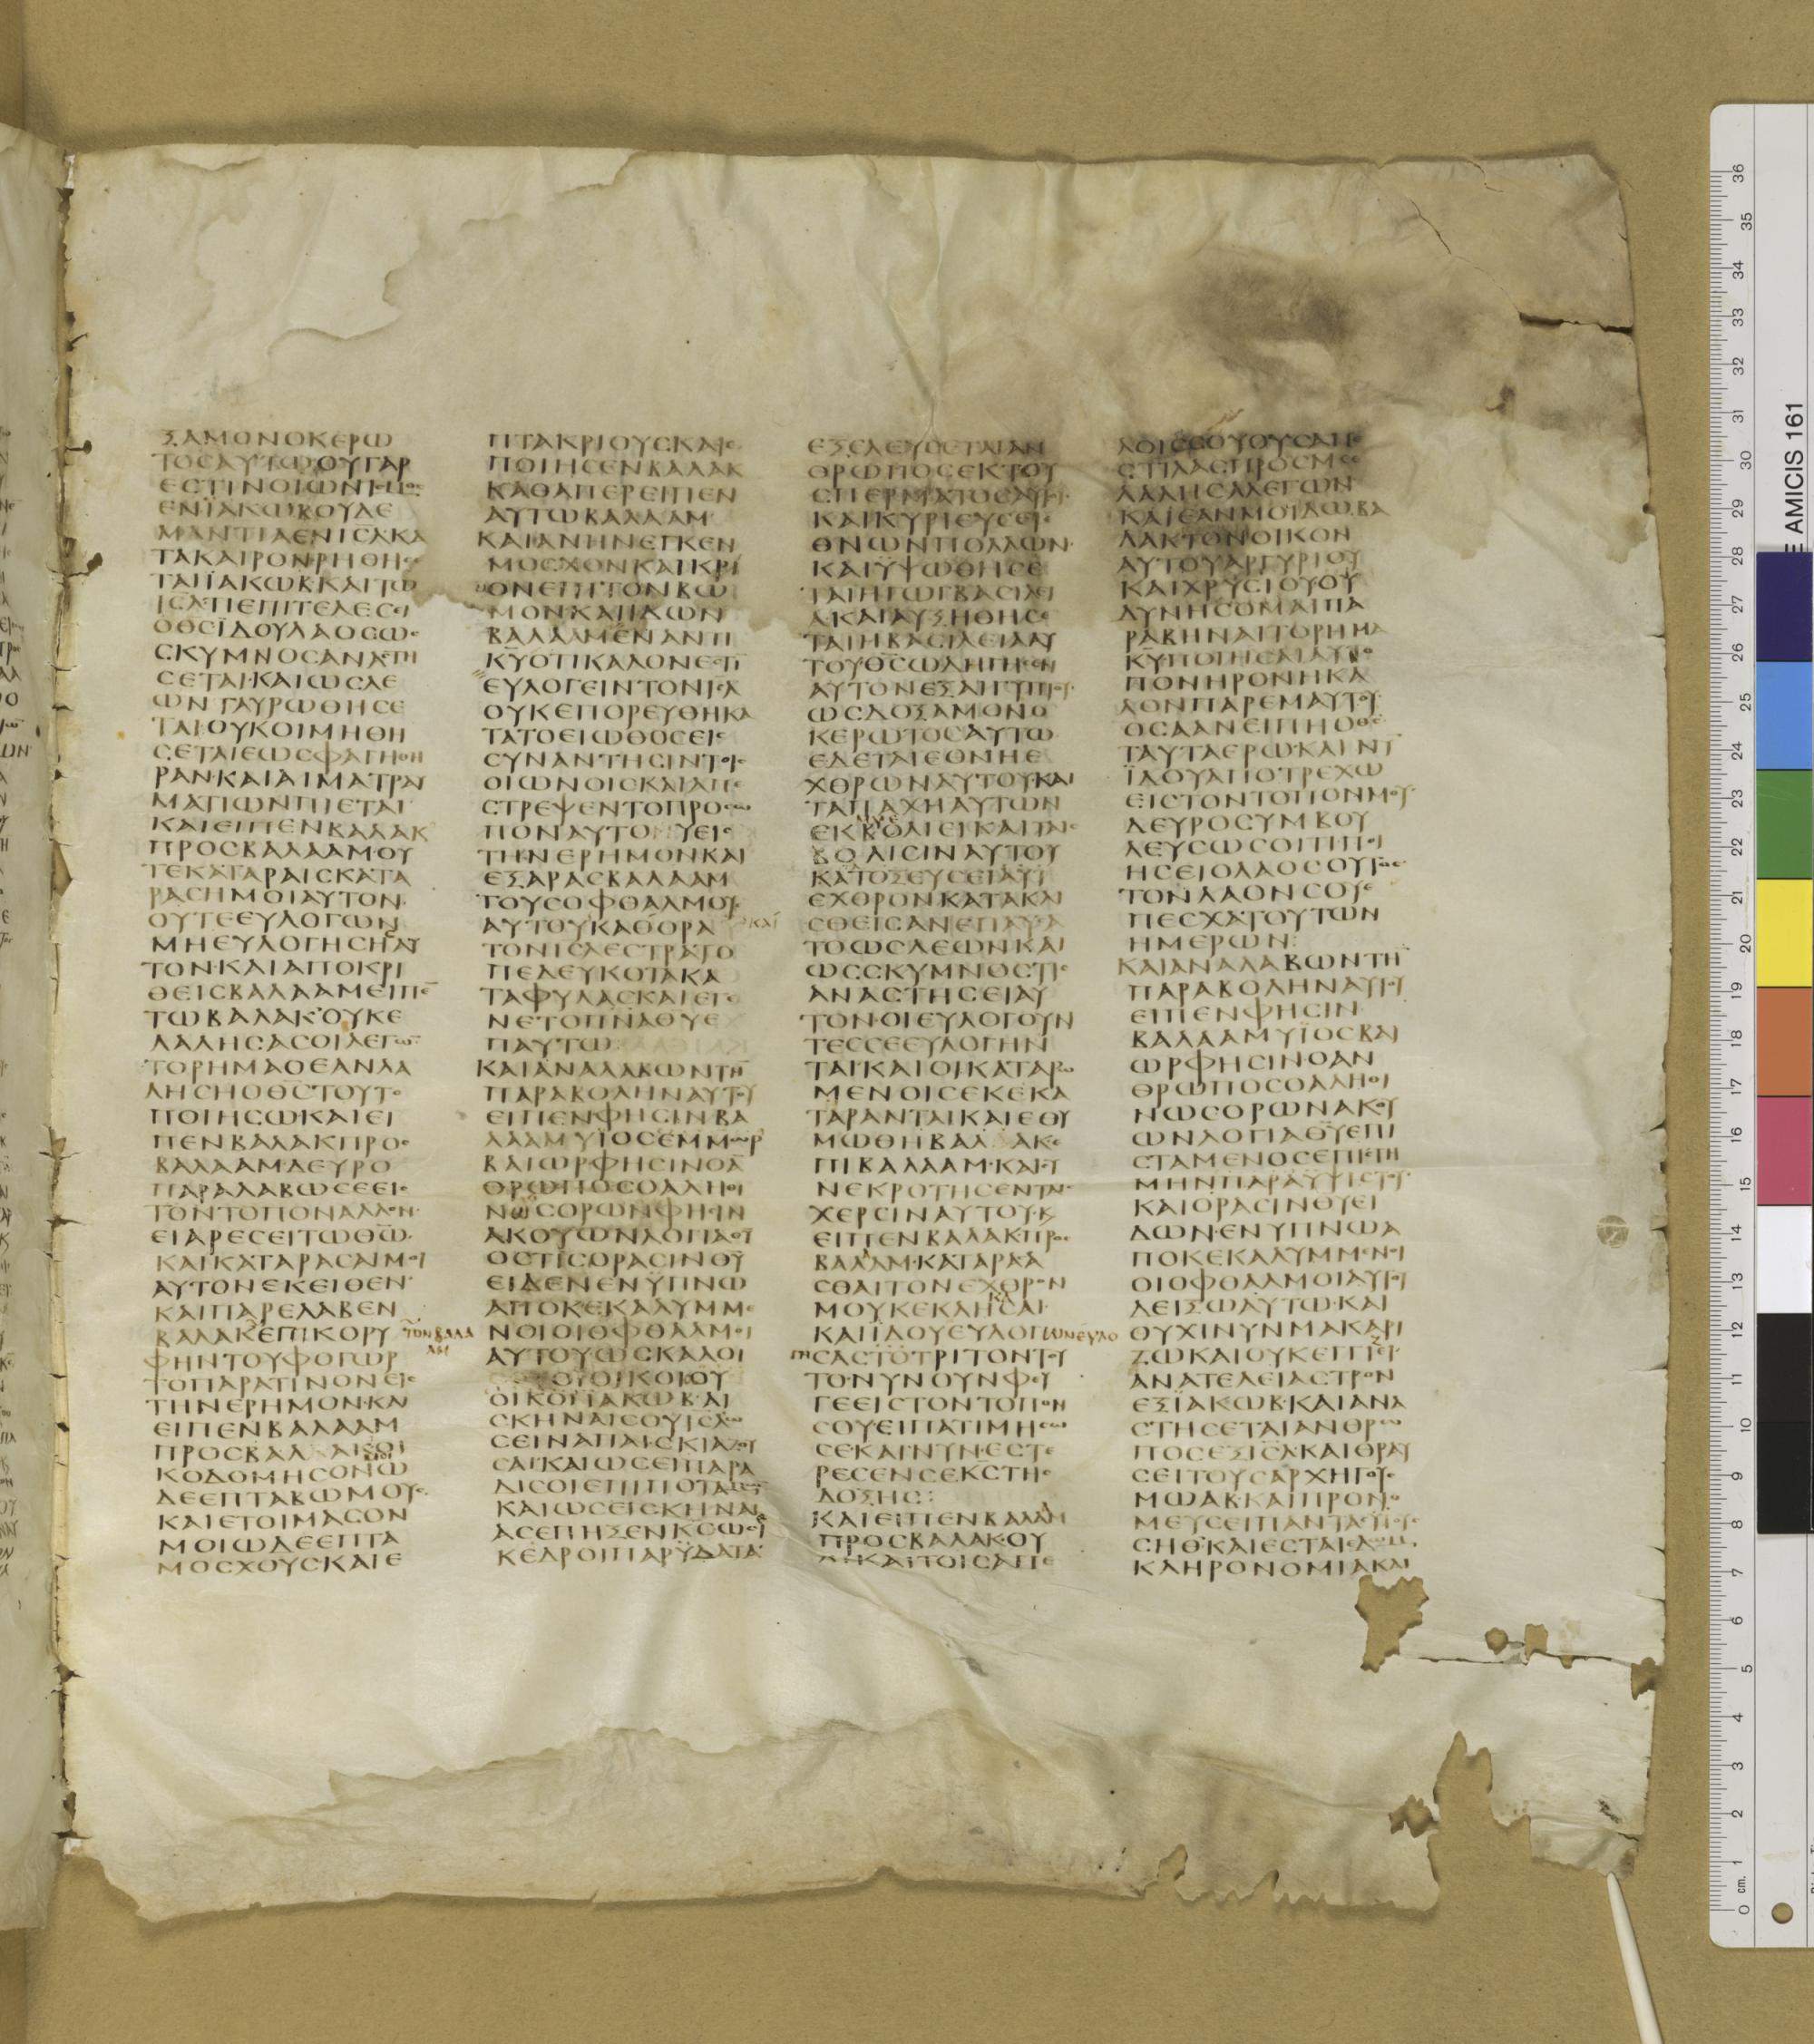 ΞΑΜΟΝΟΚΕΡΩ
ΤΟΣΑΥΤΩΟΥΓΑΡ
ΕϹΤΙΝΟΙΩΝΙϹΜΟϹ
ΕΝΪΑΚΩΒΟΥΔΕ
ΜΑΝΤΙΑΕΝΙϹ̅Λ̅ΚΑ
ΤΑΚΑΙΡΟΝΡΗΘΗϹΕ
ΤΑΙΪΑΚΩΒΚΑΙΤΩ
ΙϹ̅Λ̅ΤΙΕΠΙΤΕΛΕϹΕΙ
ΟΘ̅Ϲ̅ΙΔΟΥΛΑΟϹΩϹ
ϹΚΥΜΝΟϹΑΝΑϹΤΗ
ϹΕΤΑΙ·ΚΑΙΩϹΛΕ
ΩΝΓΑΥΡΩΘΗϹΕ
ΤΑΙΟΥΚΟΙΜΗΘΗ
ϹΕΤΑΙΕΩϹΦΑΓΗΘΗ
ΡΑΝ·ΚΑΙΑΙΜΑΤΡΑΥ
ΜΑΤΙΩΝΠΙΕΤΑΙ
ΚΑΙΕΙΠΕΝΒΑΛΑΚ
ΠΡΟϹΒΑΛΑΑΜ·ΟΥ
ΤΕΚΑΤΑΡΑΙϹΚΑΤΑ
ΡΑϹΗΜΟΙΑΥΤΟΝ
ΟΥΤΕΕΥΛΟΓΩΝ
ΜΗΕΥΛΟΓΗϹΗϹΑΥ
ΤΟΝ·ΚΑΙΑΠΟΚΡΙ
ΘΕΙϹΒΑΛΑΑΜΕΙΠΕ̅
ΤΩΒΑΛΑΚ·ΟΥΚΕ
ΛΑΛΗϹΑϹΟΙΛΕΓΩ̅
ΤΟΡΗΜΑΟΕΑΝΛΑ
ΛΗϹΗΟΘ̅Ϲ̅ΤΟΥΤΟ
ΠΟΙΗϹΩΚΑΙΕΙ
ΠΕΝΒΑΛΑΚΠΡΟϹ
ΒΑΛΑΑΜ·ΔΕΥΡΟ
ΠΑΡΑΛΑΒΩϹΕΕΙϹ
ΤΟΝΤΟΠΟΝΑΛΛΟΝ
ΕΙΑΡΕϹΕΙΤΩΘ̅Ω̅
ΚΑΙΚΑΤΑΡΑϹΑΙΜΟΙ
ΑΥΤΟΝΕΚΕΙΘΕΝ
ΚΑΙΠΑΡΕΛΑΒΕΝ
ΒΑΛΑΚΕΠΙΚΟΡΥ
ΤΟΝΒΑΛΑ
ΑΜ
ΦΗΝΤΟΥΦΟΓΩΡ
ΤΟΠΑΡΑΤΙΝΟΝΕΙϹ
ΤΗΝΕΡΗΜΟΝ·ΚΑΙ
ΕΙΠΕΝΒΑΛΑΑΜ
ΠΡΟϹΒΑΛΑΚ
ΚΟΔΟΜΗϹΟΝΩ
ΔΕΕΠΤΑΒΩΜΟΥϹ
ΚΑΙΕΤΟΙΜΑϹΟΝ
ΜΟΙΩΔΕΕΠΤΑ
ΜΟϹΧΟΥϹΚΑΙΕ
ΠΤΑΚΡΙΟΥϹΚΑΙΕ
ΠΟΙΗϹΕΝΒΑΛΑΚ
ΚΑΘΑΠΕΡΕΙΠΕΝ
ΑΥΤΩΒΑΛΑΑΜ
ΚΑΙΑΝΗΝΕΓΚΕΝ
ΜΟϹΧΟΝΚΑΙΚΡΙ
ΟΝΕΠΙΤΟΝΒΩ
ΜΟΝ·ΚΑΙΙΔΩΝ
ΒΑΛΑΑΜΕΝΑΝΤΙ
Κ̅Υ̅ΟΤΙΚΑΛΟΝΕϹΤΙ̅
ΕΥΛΟΓΕΙΝΤΟΝΙϹ̅Λ̅
ΟΥΚΕΠΟΡΕΥΘΗΚΑ
ΤΑΤΟΕΙΩΘΟϹΕΙϹ
ϹΥΝΑΝΤΗϹΙΝΤΟΙϹ
ΟΙΩΝΟΙϹΚΑΙΑΠΕ
ϹΤΡΕΨΕΝΤΟΠΡΟϹΩ
ΠΟΝΑΥΤΟΥΕΙϹ
ΤΗΝΕΡΗΜΟΝΚΑΙ
ΕΞΑΡΑϹΒΑΛΑΑΜ
ΤΟΥϹΟΦΘΑΛΜΟΥϹ
ΑΥΤΟΥΚΑΘΟΡΑ
ΤΟΝΙϹ̅Λ̅ΕϹΤΡΑΤΟ
ΠΕΔΕΥΚΟΤΑΚΑ
ΤΑΦΥΛΑϹΚΑΙΕΓΕ
ΝΕΤΟΠΝ̅Α̅Θ̅Υ̅Ε
ΠΑΥΤΩ
ΚΑΙΑΝΑΛΑΒΩΝΤΗ̅
ΠΑΡΑΒΟΛΗΝΑΥΤΟΥ
ΕΙΠΕΝΦΗϹΙΝΒΑ
ΛΑΑΜΥΪΟϹΕΜΜΩΡ
ΒΑΙΩΡΦΗϹΙΝΟΑ̅
ΘΡΩΠΟϹΟΑΛΗΘΙ
ΝΩϹΟΡΩΝΦΗϹΙΝ
ΑΚΟΥΩΝΛΟΓΙΑΘ̅Υ̅
ΟϹΤΙϹΟΡΑϹΙΝΘ̅Υ̅
ΕΙΔΕΝΕΝΥΠΝΩ
ΑΠΟΚΕΚΑΛΥΜΜΕ
ΝΟΙΟΙΟΦΘΑΛΜΟΙ
ΑΥΤΟΥΩϹΚΑΛΟΙ
ΟΙΟΙΚΟΙϹΟΥ
ΟΙΚΟΙΪΑΚΩΒ·ΑΙ
ϹΚΗΝΑΙϹΟΥΙϹ̅Λ̅Ω
ϹΕΙΝΑΠΑΙϹΚΙΑΖΟΥ
ϹΑΙ·ΚΑΙΩϹΕΙΠΑΡΑ
ΔΙϹΟΙΕΠΙΠΟΤΑΜΩ̅
ΚΑΙΩϹΕΙϹΚΗΝΑΙ
ΑϹΕΠΗΞΕΝΚ̅Ϲ̅ΩϹΕΙ
ΚΕΔΡΟΙΠΑΡΫΔΑΤΑ
ΕΞΕΛΕΥϹΕΤΑΙΑΝ
ΘΡΩΠΟϹΕΚΤΟΥ
ϹΠΕΡΜΑΤΟϹΑΥΤΟΥ
ΚΑΙΚΥΡΙΕΥϹΕΙΕ
ΘΝΩΝΠΟΛΛΩΝ
ΚΑΙΫΨΩΘΗϹΕ
ΤΑΙΗΓΩΓΒΑϹΙΛΕΙ
ΑΚΑΙΑΥΞΗΘΗϹΕ
ΤΑΙΗΒΑϹΙΛΕΙΑΑΥ
ΤΟΥΘ̅Ϲ̅ΩΔΗΓΗϹΕΝ
ΑΥΤΟΝΕΞΑΙΓΥΠΤΟΥ
ΩϹΔΟΞΑΜΟΝΟ
ΚΕΡΩΤΟϹΑΥΤΩ
ΕΔΕΤΑΙΕΘΝΗΕ
ΧΘΡΩΝΑΥΤΟΥΚΑΙ
ΤΑΠΑΧΗΑΥΤΩΝ
ΒΟΛΙϹΙΝΑΥΤΟΥ
ΚΑΤΟΞΕΥϹΕΙΑΥΤ
ΕΧΘΡΟΝΚΑΤΑΚΛΙ
ϹΘΕΙϹΑΝΕΠΑΥϹΑ
ΤΟΩϹΛΕΩΝΚΑΙ
ΩϹϹΚΥΜΝΟϹΤΙϹ
ΑΝΑϹΤΗϹΕΙΑΥ
ΤΟΝ·ΟΙΕΥΛΟΓΟΥΝ
ΤΕϹϹΕΕΥΛΟΓΗΝ
ΤΑΙ·ΚΑΙΟΙΚΑΤΑΡΩ
ΜΕΝΟΙϹΕΚΕΚΑ
ΤΑΡΑΝΤΑΙΚΑΙΕΘΥ
ΜΩΘΗΒΑΛΑΚΕ
ΠΙΒΑΛΑΑΜ·ΚΑΙϹΥ
ΝΕΚΡΟΤΗϹΕΝΤΑΙϹ
ΧΕΡϹΙΝΑΥΤΟΥ·Κ
ΕΙΠΕΝΒΑΛΑΚΠΡΟϹ
ΒΑΛΑΜ·ΚΑΤΑΡΑΑ
ϹΘΑΙΤΟΝΕΧΘΡΟΝ
ΜΟΥΚΕΚΛΗϹΑΙ
ΚΑΙΪΔΟΥΕΥΛΟΓΩΝΕΥΛΟ
ΓΗϹΑϹΤΟΤΡΙΤΟΝΤΟΥ
ΤΟ·ΝΥΝΟΥΝΦΕΥ
ΓΕΕΙϹΤΟΝΤΟΠΟΝ
ϹΟΥΕΙΠΑΤΙΜΗϹΩ
ϹΕ·ΚΑΙΝΥΝΕϹΤΕ
ΡΕϹΕΝϹΕΚ̅Ϲ̅ΤΗϹ
ΔΟΞΗϹ:
ΚΑΙΕΙΠΕΝΒΑΛΑΑΜ
ΠΡΟϹΒΑΛΑΚ·ΟΥ
ΧΙΚΑΙΤΟΙϹΑΓΓΕ
ΛΟΙϹϹΟΥΟΥϹΑΠΕ
ϹΤΙΛΑϹΠΡΟϹΜΕ
ΛΑΛΗϹΑΛΕΓΩΝ
ΚΑΙΕΑΝΜΟΙΔΩΒΑ
ΛΑΚΤΟΝΟΙΚΟΝ
ΑΥΤΟΥΑΡΓΥΡΙΟΥ
ΚΑΙΧΡΥϹΙΟΥΟΥ
ΔΥΝΗϹΟΜΑΙΠΑ
ΡΑΒΗΝΑΙΤΟΡΗΜΑ
Κ̅Υ̅ΠΟΙΗϹΑΙΑΥΤΟ
ΠΟΝΗΡΟΝΗΚΑ
ΛΟΝΠΑΡΕΜΑΥΤΟΥ
ΟϹΑΑΝΕΙΠΗΟΘ̅Ϲ̅
ΤΑΥΤΑΕΡΩ·ΚΑΙΝΥ̅
ΪΔΟΥΑΠΟΤΡΕΧΩ
ΕΙϹΤΟΝΤΟΠΟΝΜΟΥ
ΔΕΥΡΟϹΥΜΒΟΥ
ΛΕΥϹΩϹΟΙΤΙΠΟΙ
ΗϹΕΙΟΛΑΟϹΟΥΤΟϹ
ΤΟΝΛΑΟΝϹΟΥΕ
ΠΕϹΧΑΤΟΥΤΩΝ
ΗΜΕΡΩΝ:
ΚΑΙΑΝΑΛΑΒΩΝΤΗ̅
ΠΑΡΑΒΟΛΗΝΑΥΤΟΥ
ΕΙΠΕΝΦΗϹΙΝ
ΒΑΛΑΑΜΥΪΟϹΒΑΙ
ΩΡΦΗϹΙΝΟΑΝ
ΘΡΩΠΟϹΟΑΛΗΘΙ
ΝΩϹΟΡΩΝΑΚΟΥ
ΩΝΛΟΓΙΑΘ̅Υ̅ΕΠΙ
ϹΤΑΜΕΝΟϹΕΠΙϹΤΗ
ΜΗΝΠΑΡΑΥΨΙϹΤΟΥ
ΚΑΙΟΡΑϹΙΝΘ̅Υ̅ΕΙ
ΔΩΝ·ΕΝΥΠΝΩΑ
ΠΟΚΕΚΑΛΥΜΜΕΝΟΙ
ΟΙΟΦΘΑΛΜΟΙΑΥΤΟΥ
ΔΕΙΞΩΑΥΤΩ·ΚΑΙ
ΟΥΧΙΝΥΝΜΑΚΑΡΙ
ΖΩΚΑΙΟΥΚΕΓΓΙΖΕΙ
ΑΝΑΤΕΛΕΙΑϹΤΡΟΝ
ΕΞΪΑΚΩΒ·ΚΑΙΑΝΑ
ϹΤΗϹΕΤΑΙΑΝΘΡΩ
ΠΟϹΕΞΙϹ̅Λ̅ΚΑΙΘΡΑΥ
ϹΕΙΤΟΥϹΑΡΧΗΓΟΥϹ
ΜΩΑΒ·ΚΑΙΠΡΟΝΟ
ΜΕΥϹΕΙΠΑΝΤΑϹΥΙΟΥϹ
ϹΗΘ·ΚΑΙΕϹΤΑΙΕΔΩΜ
ΚΛΗΡΟΝΟΜΙΑΚΑΙ